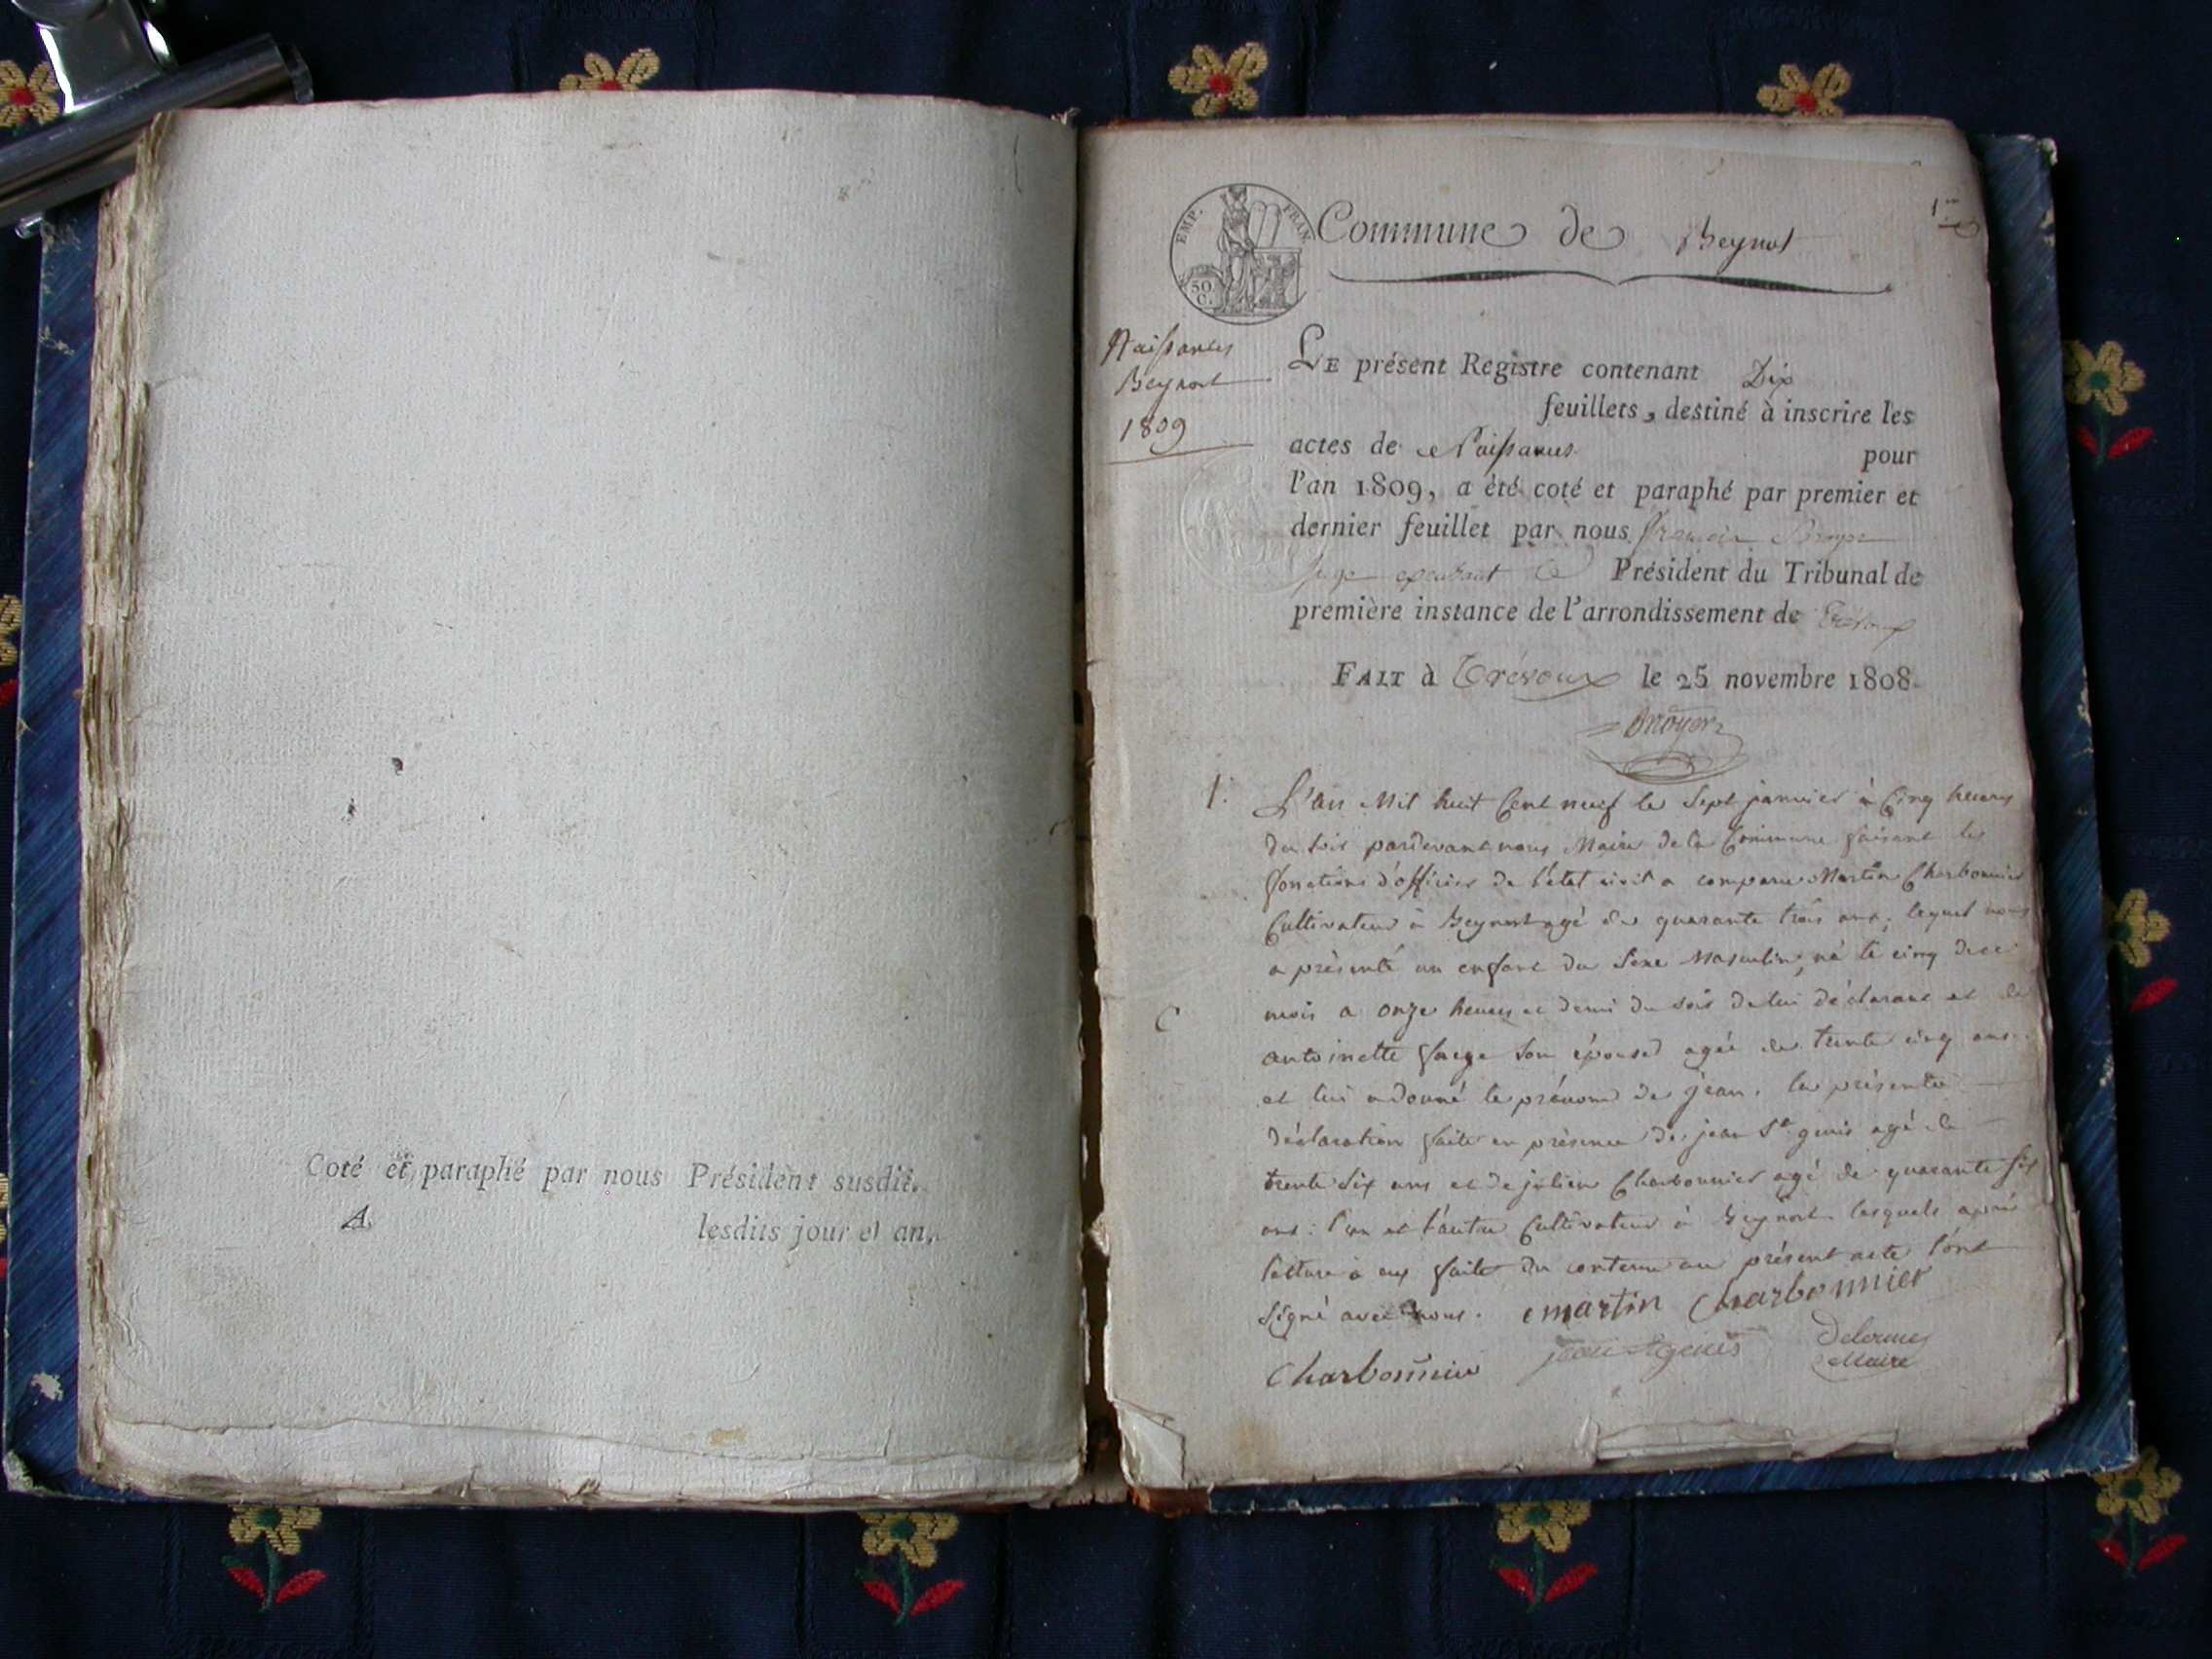 Coté et paraphé par nous Président susdit.
A
lesdits jour et an.
1er
EMP. FRAN.
50
C.
Commune de Beynost
Naissances
Beynost
1809
LE présent Registre contenant Dix
feuillets, destiné à inscrire les
actes de Naissances pour
l'an 1809, a été coté et paraphé par premier et
dernier feuillet par nous
juge Président du Tribunal de
première instance de l'arrondissement de Trévoux
FAIT à Trévoux le 25 novembre 1808.
Broyer
1. L'an Mil huit Cent neuf le Sept janvier à Cinq heures
du Soir pardevant nous Maire de la Commune faisant les
fonctions d'officier de l'état civil a comparu Martin Charbonnier
Cultivateur à Beynost agé de quarante trois ans; lequel nous
a présenté un enfant du Sexe Masculin, né le cinq dece
C
mois a onze heures et demi du soir de lui déclarant et de
antoinette son épouse agée de trente cinq ans
et lui a donné le prénom de jean. la présente
déclaration faite en présence de jean St genis agé de
trente Six ans et de julien Charbonnier agé de quarante six
ans: l'un et l'autre Cultivateur à Beynost lesquels après
lecture à eux faite du contenu au présent acte l'ont
Signé avec nous. martin Charbonnier
Charbonnier jean St genis
Maire